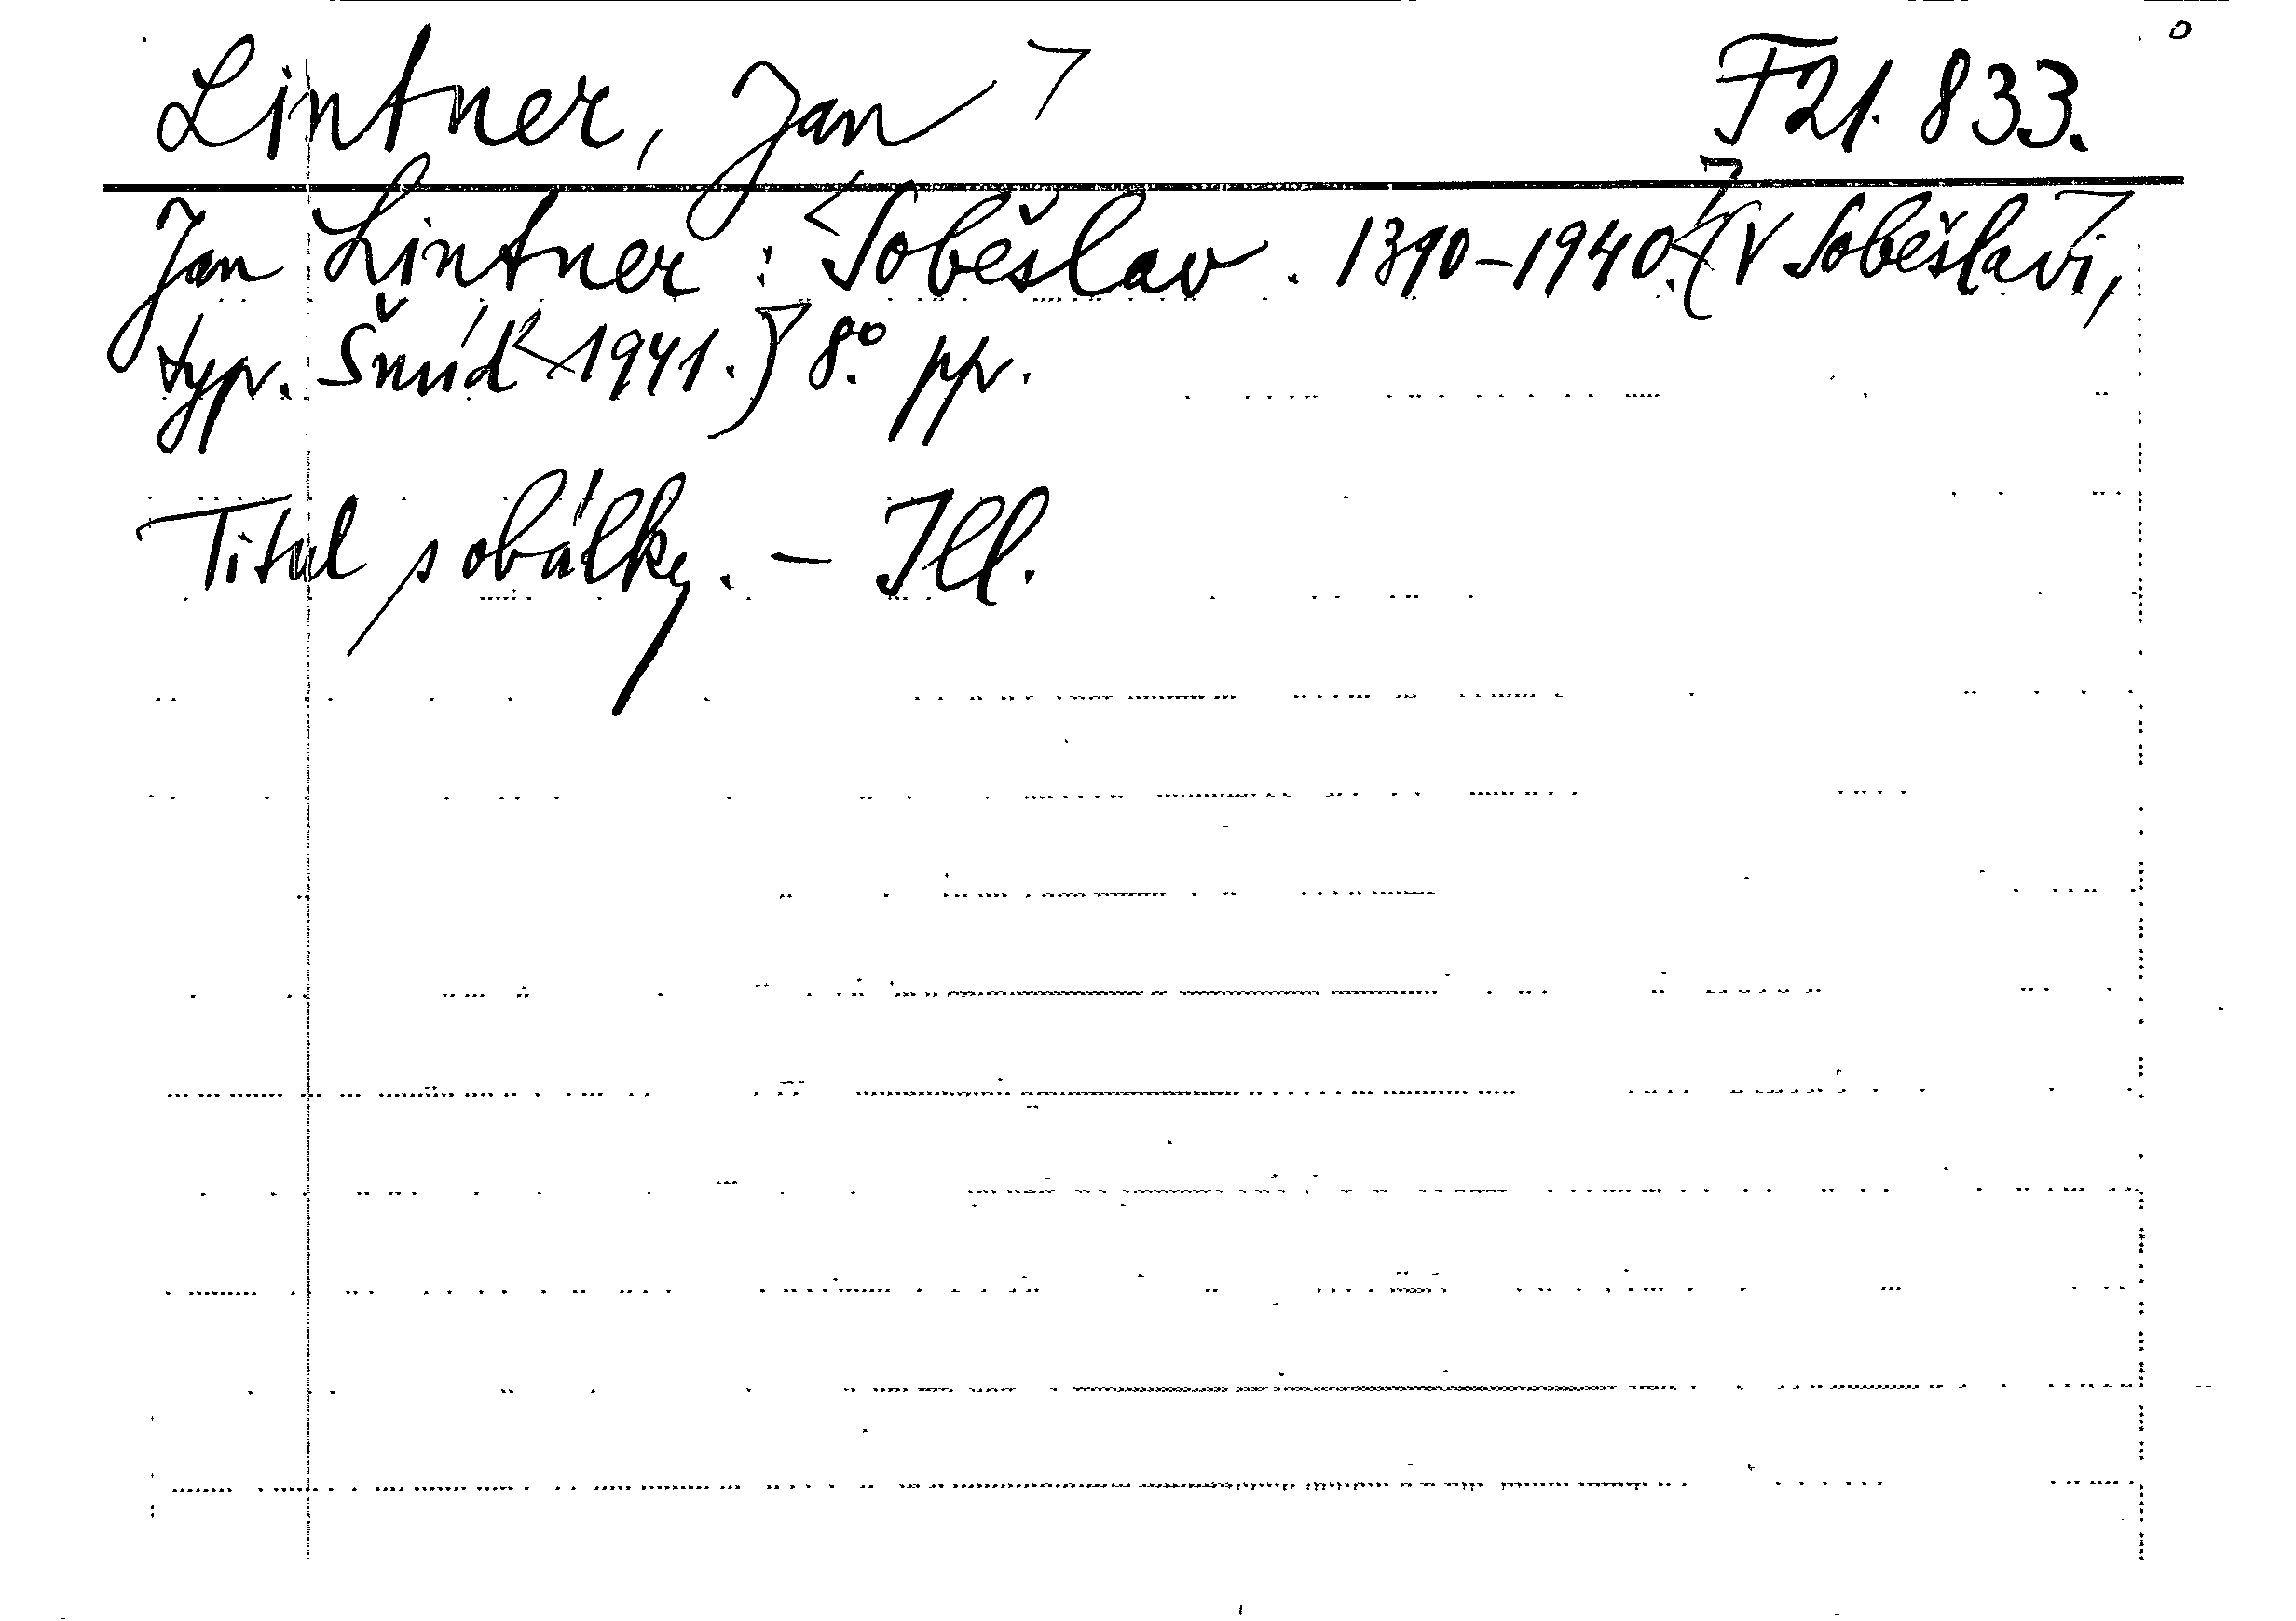 Lintner, Jan F 21.833.
Jan Lintner: Soběslav. 1390-1940. (V Soběslavi,
typ. Šmíd 1941.) 8º. pp.
Titul s obálky. - Ill.